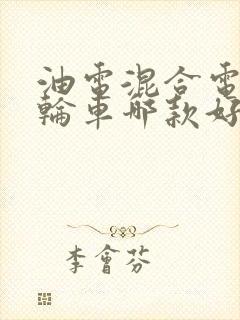 油電混合電
輪車哪款好
李會芬